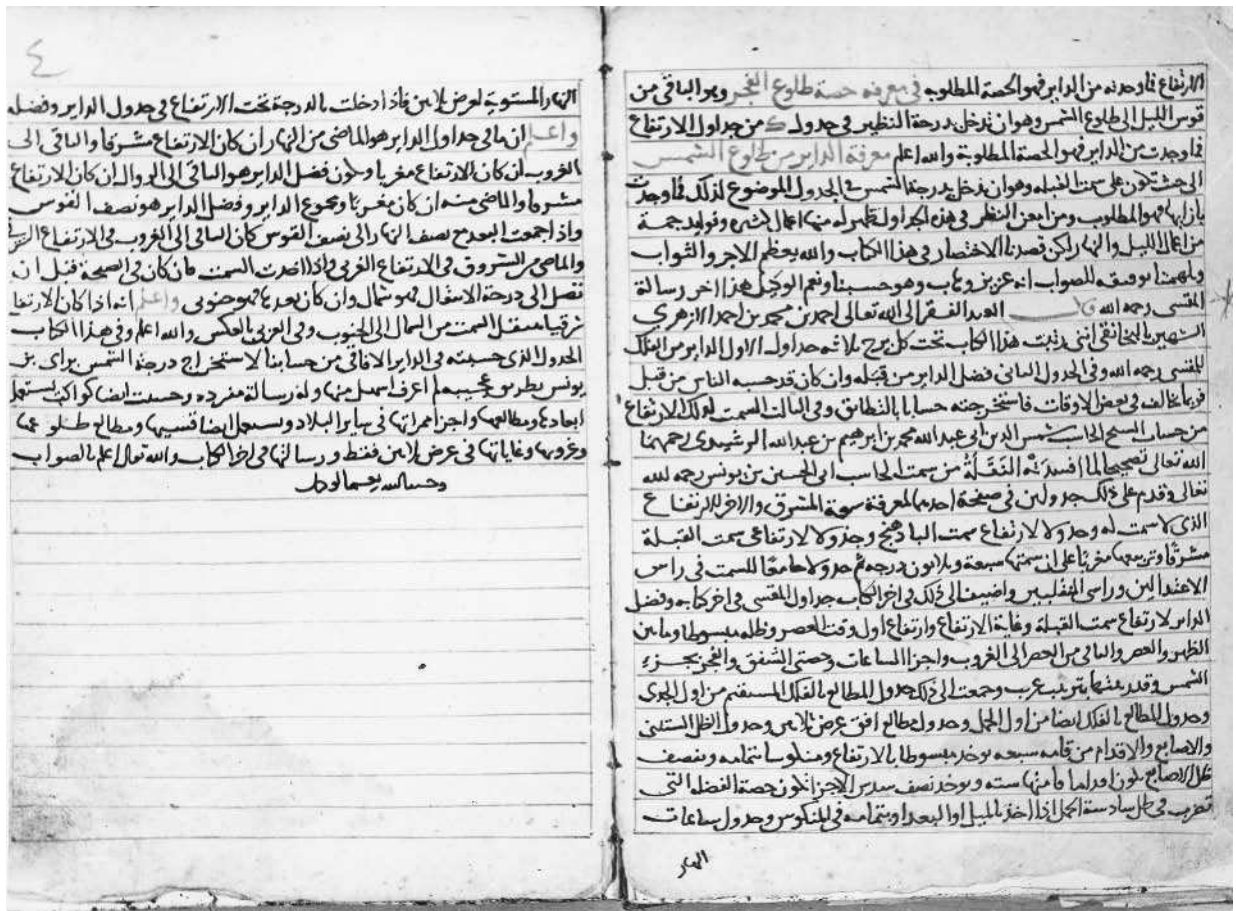 الارتفاع فما وجدته من الداير فهو الحصة المطلوبه في معرفه حصة طلوع الفجر وهو الباقي من
قوس الليل الى طلوع الشمس وهو ان تدخل بدرجة النظير في جدول من جداول الارتفاع
فما وجدت من الداير فهو الحصة المطلوبة والله اعلم معرفة الداير من طلوع الشمس
الى حيث تكون على سمت القبله وهو ان تدخل بدرجة الشمس في الجدول الموضوع لذلك فما وجدت
بازايها فهو المطلوب ومن امعن النظر في هذه الجداول ظهر له منها اعمال كثيره وفوايد جمة
من اعمال الليل والنهار لكن قصدنا الاختصار في هذا الكتاب والله يعظم الاجر والثواب
ويلهمنا توفيقه للصواب انه عزيز وهاب وهو حسبنا ونعم الوكيل هذا اخر رسالة
المقسى رحمه الله قال العبد الفقير الى الله تعالى احمد بن محمد بن احمد الازهري
الشهير بالخانقي انني رتبت هذا الكتاب تحت كل برج ثلاثه جداول الاول الداير من الفلك
للمقسى رحمه الله وفي الجدول الثاني فضل الداير من قبله وان كان قد حسبه الناس من قبل
فربما يخالف في بعض الاوقات فاستخرجته حسابا بالنطائق وفي الثالث السمت لذلك الارتفاع
من حساب الشيخ الحاسب شمس الدين ابى عبد الله محمد بن ابرهيم بن عبد الله الرشيدي رحمهما
الله تعالى تصحيحا لما افسدته النقلة من سمت الحاسب ابى الحسن بن يونس رحمه الله
تعالى وقدم على ذلك جدولين في صفحة احدهما لمعرفة سعة المشرق والاخر للارتفاع
الذى لا سمت له وجدولا لارتفاع سمت الباذهنج وجدولا لارتفاع سمت القبلة
مشرقا وتربيعها مغربا على ان سمتها سبعة وثلاثون درجه ثم جدولا جامعا للسمت في راس
الاعتدالين وراسى المنقلبين واضيف الى ذلك في اخر الكتاب جداول المقسى في اخر كتابه وفضل
الداير لارتفاع سمت القبلة وغاية الارتفاع وارتفاع اول وقت العصر وظله مبسوطا وما بين
الظهر والعصر والباقي من العصر الى الغروب واجزا الساعات وحصتى الشفق والفجر بجزء
الشمس وقد رتبتها بترتيب غريب وجمعت الى ذلك جدول المطالع بالفلك المستقيم من اول الجدى
وجدول المطالع بالفلك ايضا من اول الحمل وجدول مطالع افق عرض ثلاثين وجدول الظل الستينى
والاصابع والاقدام من قامه سبعه يوخد مبسوطا بالارتفاع ومنكوسا بتمامه ونصف
ظل الاصابع يكون اقداما قامتها سته ويوخد نصف سدس الاجزا تكون حصة الفضله التى
تضرب في ظل سادسة الحمل اذا اخذ بالميل او البعد او بتمامه في المنكوس وجدول ساعات
النهار
٤
النهار المستوية لعرض ثلاثين فاذا دخلت بالدرجة تحت الارتفاع في جدول الداير وفضله
واعلم ان ما في جداول الداير هو الماضى من النهار ان كان الارتفاع مشرقا والباقى الى
الغروب ان كان الارتفاع مغربا ويكون فضل الداير هو الباقى الى الزوال ان كان الارتفاع
مشرقا والماضى منه ان كان مغربا ومجموع الداير وفضل الداير هو نصف القوس
واذا جمعت لبعد مع نصف النهار الى نصف القوس كان الباقى الى الغروب في الارتفاع الشرقى
والماضى من الشروق في الارتفاع الغربى واذا اخذت السمت فان كان في الصفحة قبل ان
تصل الى درجة الانتقال فهو شمال وان كان بعدها فهو جنوبى واعلم انه اذا كان الارتفاع
شرقيا ينتقل السمت من الشمال الى الجنوب وفى الغربى بالعكس والله اعلم وفى هذا الكتاب
الجدول الذى حسبته في الداير الافاقى من حسابنا لاستخراج درجة الشمس براى بن
يونس بطريق عجيبه لم اعرف اسهل منها وله رسالة مفرده وحسبت ايضا كواكب يستعمل
ابعادها ومطالعها واجزا ممراتها في ساير البلاد ويستعمل ايضا قسيها ومطالع طلوعها
وغروبها وغاياتها في عرض ثلاثين فقط ورسالتها في اخر الكتاب والله تعالى اعلم بالصواب
وحسبنا الله ونعم الوكيل